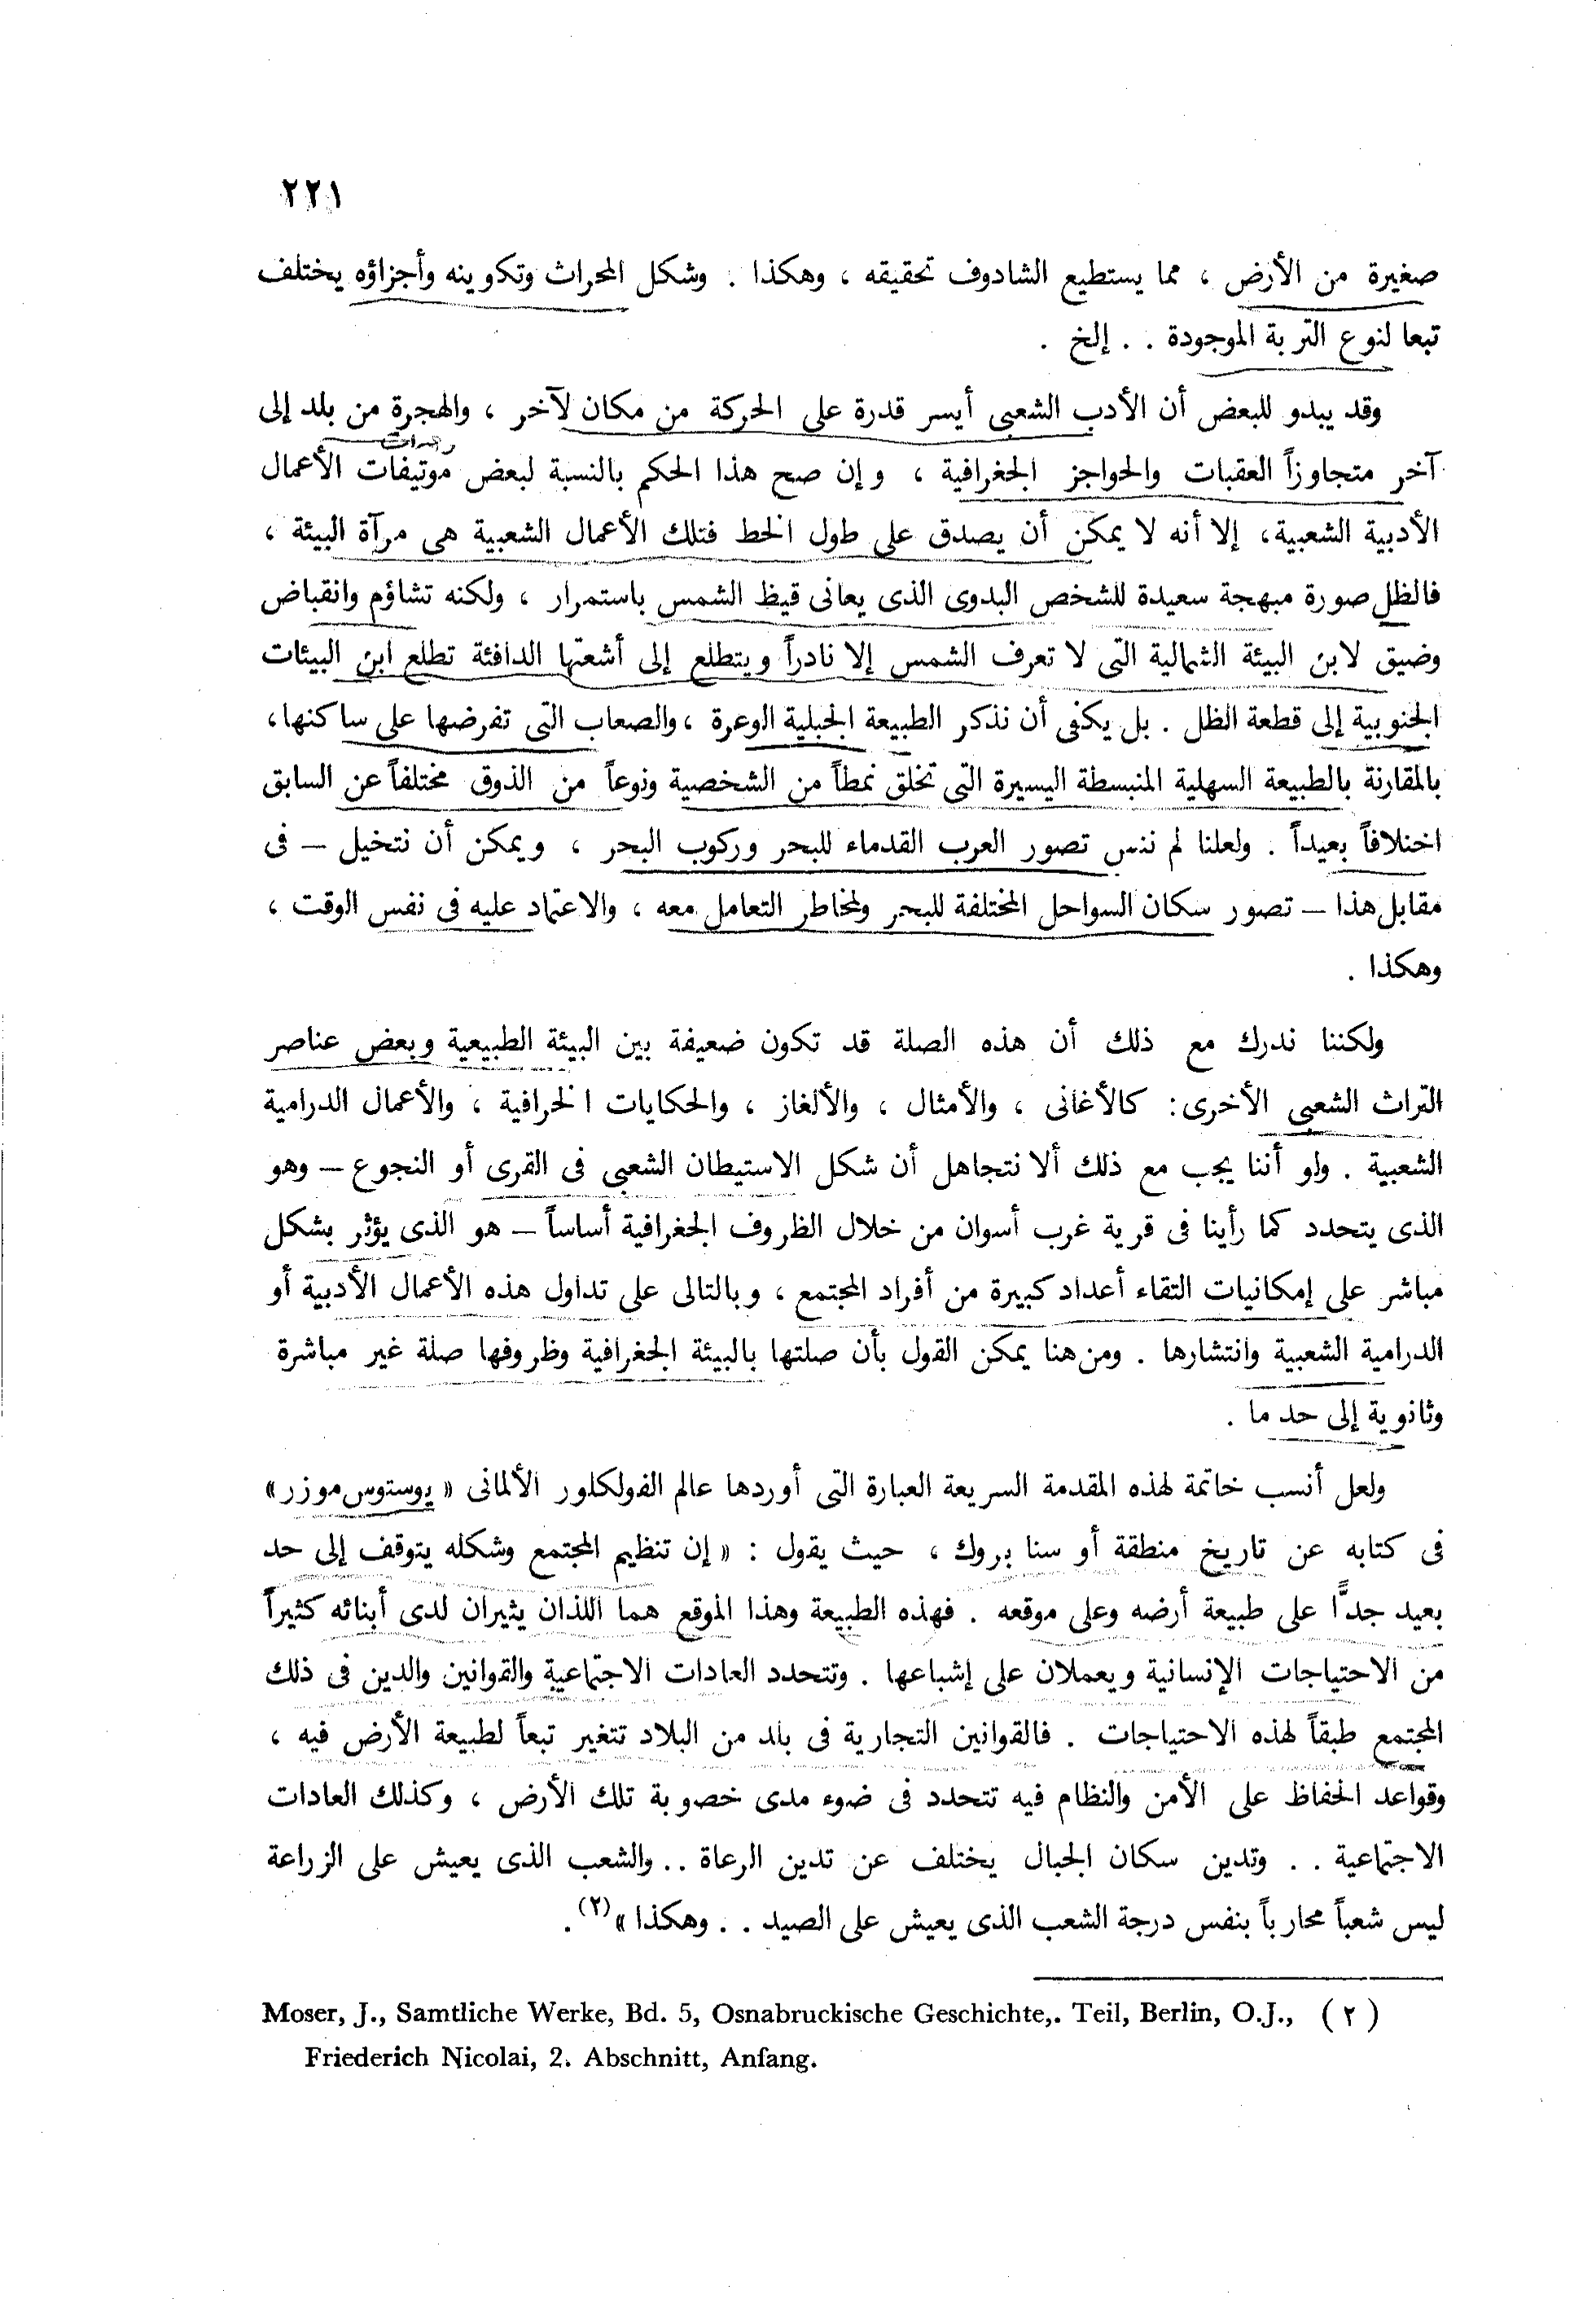 ٢٢١
صغيرة من الأرض ، مما يستطيع الشادوف تحقيقه ، وهكذا . وشكل المحراث وتكوينه وأجزاؤه يختلف
تبعا لنوع التربة الموجودة . . إلخ .
وقد يبدو للبعض أن الأدب الشعبى أيسر قدرة على الحركة من مكان لآخر ، والهجرة من بلد إلى
آخر متجاوزاً العقبات والحواجز الجغرافية ، وإن صح هذا الحكم بالنسبة لبعض موتيفات الأعمال
الأدبية الشعبية، إلا أنه لا يمكن أن يصدق على طول الخط فتلك الأعمال الشعبية هى مرآة البيئة ،
فالظل صورة مبهجة سعيدة للشخص البدوى الذى يعانى قيظ الشمس باستمرار ، ولكنه تشاؤم وانقباض
وضيق لابن البيئة الشمالية التى لا تعرف الشمس إلا نادراً ويتطلع إلى أشعتها الدافئة تطلع ابن البيئات
الجنوبية إلى قطعة الظل . بل يكفى أن نذكر الطبيعة الجبلية الوعرة ، والصعاب التى تفرضها على ساكنها،
بالمقارنة بالطبيعة السهلية المنبسطة اليسيرة التى تخلق نمطاً من الشخصية ونوعاً من الذوق مختلفاً عن السابق
اختلافاً بعيداً . ولعلنا لم ننس تصور العرب القدماء للبحر وركوب البحر ، ويمكن أن نتخيل – فى
مقابل هذا – تصور سكان السواحل المختلفة للبحر ولمخاطر التعامل معه ، والاعتماد عليه فى نفس الوقت ،
وهكذا .
ولكننا ندرك مع ذلك أن هذه الصلة قد تكون ضعيفة بين البيئة الطبيعية وبعض عناصر
التراث الشعبى الأخرى: كالأغانى ، والأمثال ، والألغاز ، والحكايات الخرافية ، والأعمال الدرامية
الشعبية . ولو أننا يجب مع ذلك ألا نتجاهل أن شكل الاستيطان الشعبى فى القرى أو النجوع – وهو
الذى يتحدد كما رأينا فى قرية غرب أسوان من خلال الظروف الجغرافية أساساً – هو الذى يؤثر بشكل
مباشر على إمكانيات التقاء أعداد كبيرة من أفراد المجتمع ، وبالتالى على تداول هذه الأعمال الأدبية أو
الدرامية الشعبية وانتشارها . ومن هنا يمكن القول بأن صلتها بالبيئة الجغرافية وظروفها صلة غير مباشرة
وثانوية إلى حد ما .
ولعل أنسب خاتمة لهذه المقدمة السريعة العبارة التى أوردها عالم الفولكلور الألمانى « يوستوس موزر»
فى كتابه عن تاريخ منطقة أو سنا بروك ، حيث يقول : « إن تنظيم المجتمع وشكله يتوقف إلى حد
بعيد جدًّا على طبيعة أرضه وعلى موقعه . فهذه الطبيعة وهذا الموقع هما اللذان يثيران لدى أبنائه كثيراً
من الاحتياجات الإنسانية ويعملان على إشباعها . وتتحدد العادات الاجتماعية والقوانين والدين فى ذلك
المجتمع طبقاً لهذه الاحتياجات . فالقوانين التجارية فى بلد من البلاد تتغير تبعاً لطبيعة الأرض فيه ،
وقواعد الحفاظ على الأمن والنظام فيه تتحدد فى ضوء مدى خصوبة تلك الأرض ، وكذلك العادات
الاجتماعية . . وتدين سكان الجبال يختلف عن تدين الرعاة . . والشعب الذى يعيش على الزراعة
ليس شعباً محارباً بنفس درجة الشعب الذى يعيش على الصيد . . وهكذا »(٢).
Moser, J., Samtliche Werke, Bd. 5, Osnabruckische Geschichte,. Teil, Berlin, O.J., (٢)
Friederich Nicolai, 2. Abschnitt, Anfang.